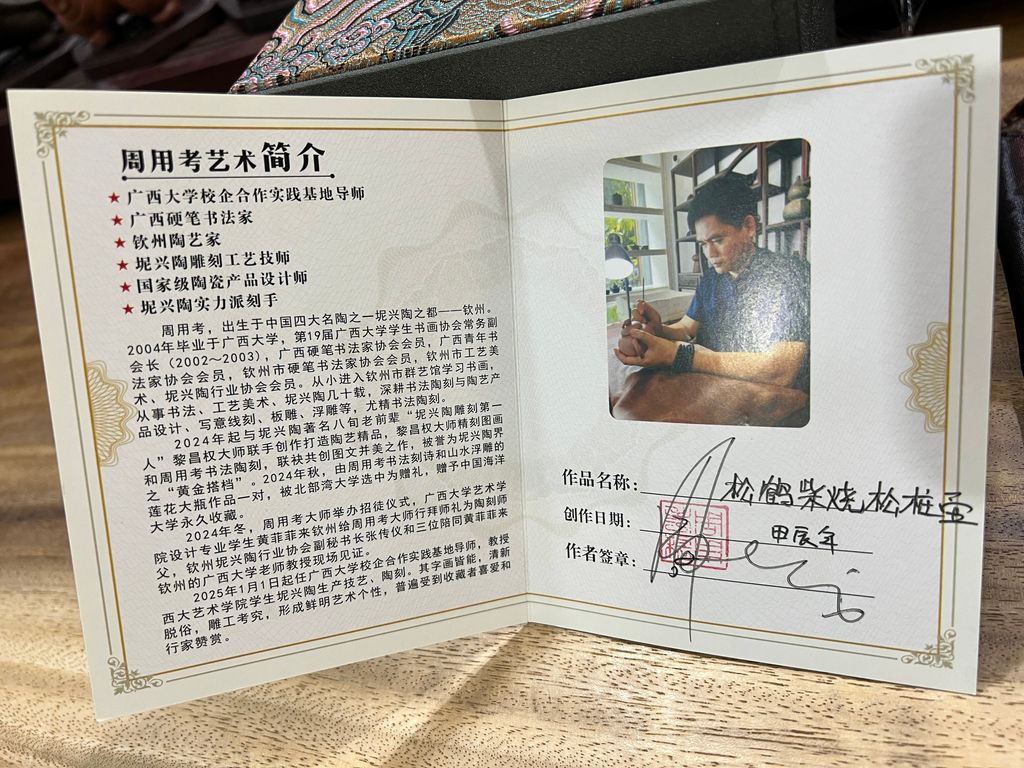 周用考艺术简介
★广西大学校企合作实践基地导师
★广西硬笔书法家
★钦州陶艺家
★坭兴陶雕刻工艺技师
★国家级陶瓷产品设计师
★坭兴陶实力派刻手
周用考，出生于中国四大名陶之一坭兴陶之都——钦州。
2004年毕业于广西大学，第19届广西大学学生书画协会常务副
会长（2002～2003），广西硬笔书法家协会会员，广西青年书
法家协会会员，钦州市硬笔书法家协会会员，钦州市工艺美
术、坭兴陶行业协会会员。从小进入钦州市群艺馆学习书画，
从事书法、工艺美术、坭兴陶几十载，深耕书法陶刻与陶艺产
品设计、写意线刻、板雕、浮雕等，尤精书法陶刻。
2024年起与坭兴陶著名八旬老前辈“坭兴陶雕刻第一
人”黎昌权大师联手创作打造陶艺精品，黎昌权大师精刻图画
和周用考书法陶刻，联袂共创图文并美之作，被誉为坭兴陶界
之“黄金搭档”。2024年秋，由周用考书法刻诗和山水浮雕的
莲花大瓶作品一对，被北部湾大学选中为赠礼，赠予中国海洋
大学永久收藏。
2024年冬，周用考大师举办招徒仪式，广西大学艺术学
院设计专业学生黄菲菲来钦州给周用考大师行拜师礼为陶刻师
父，钦州坭兴陶行业协会副秘书长张传仪和三位陪同黄菲菲来
钦州的广西大学老师教授现场见证。
2025年1月1日起任广西大学校企合作实践基地导师，教授
西大艺术学院学生坭兴陶生产技艺、陶刻。其字画皆能，清新
脱俗，雕工考究，形成鲜明艺术个性，普遍受到收藏者喜爱和
行家赞赏。
作品名称：松鹤柴烧松桩壶
创作日期：甲辰年
作者签章：